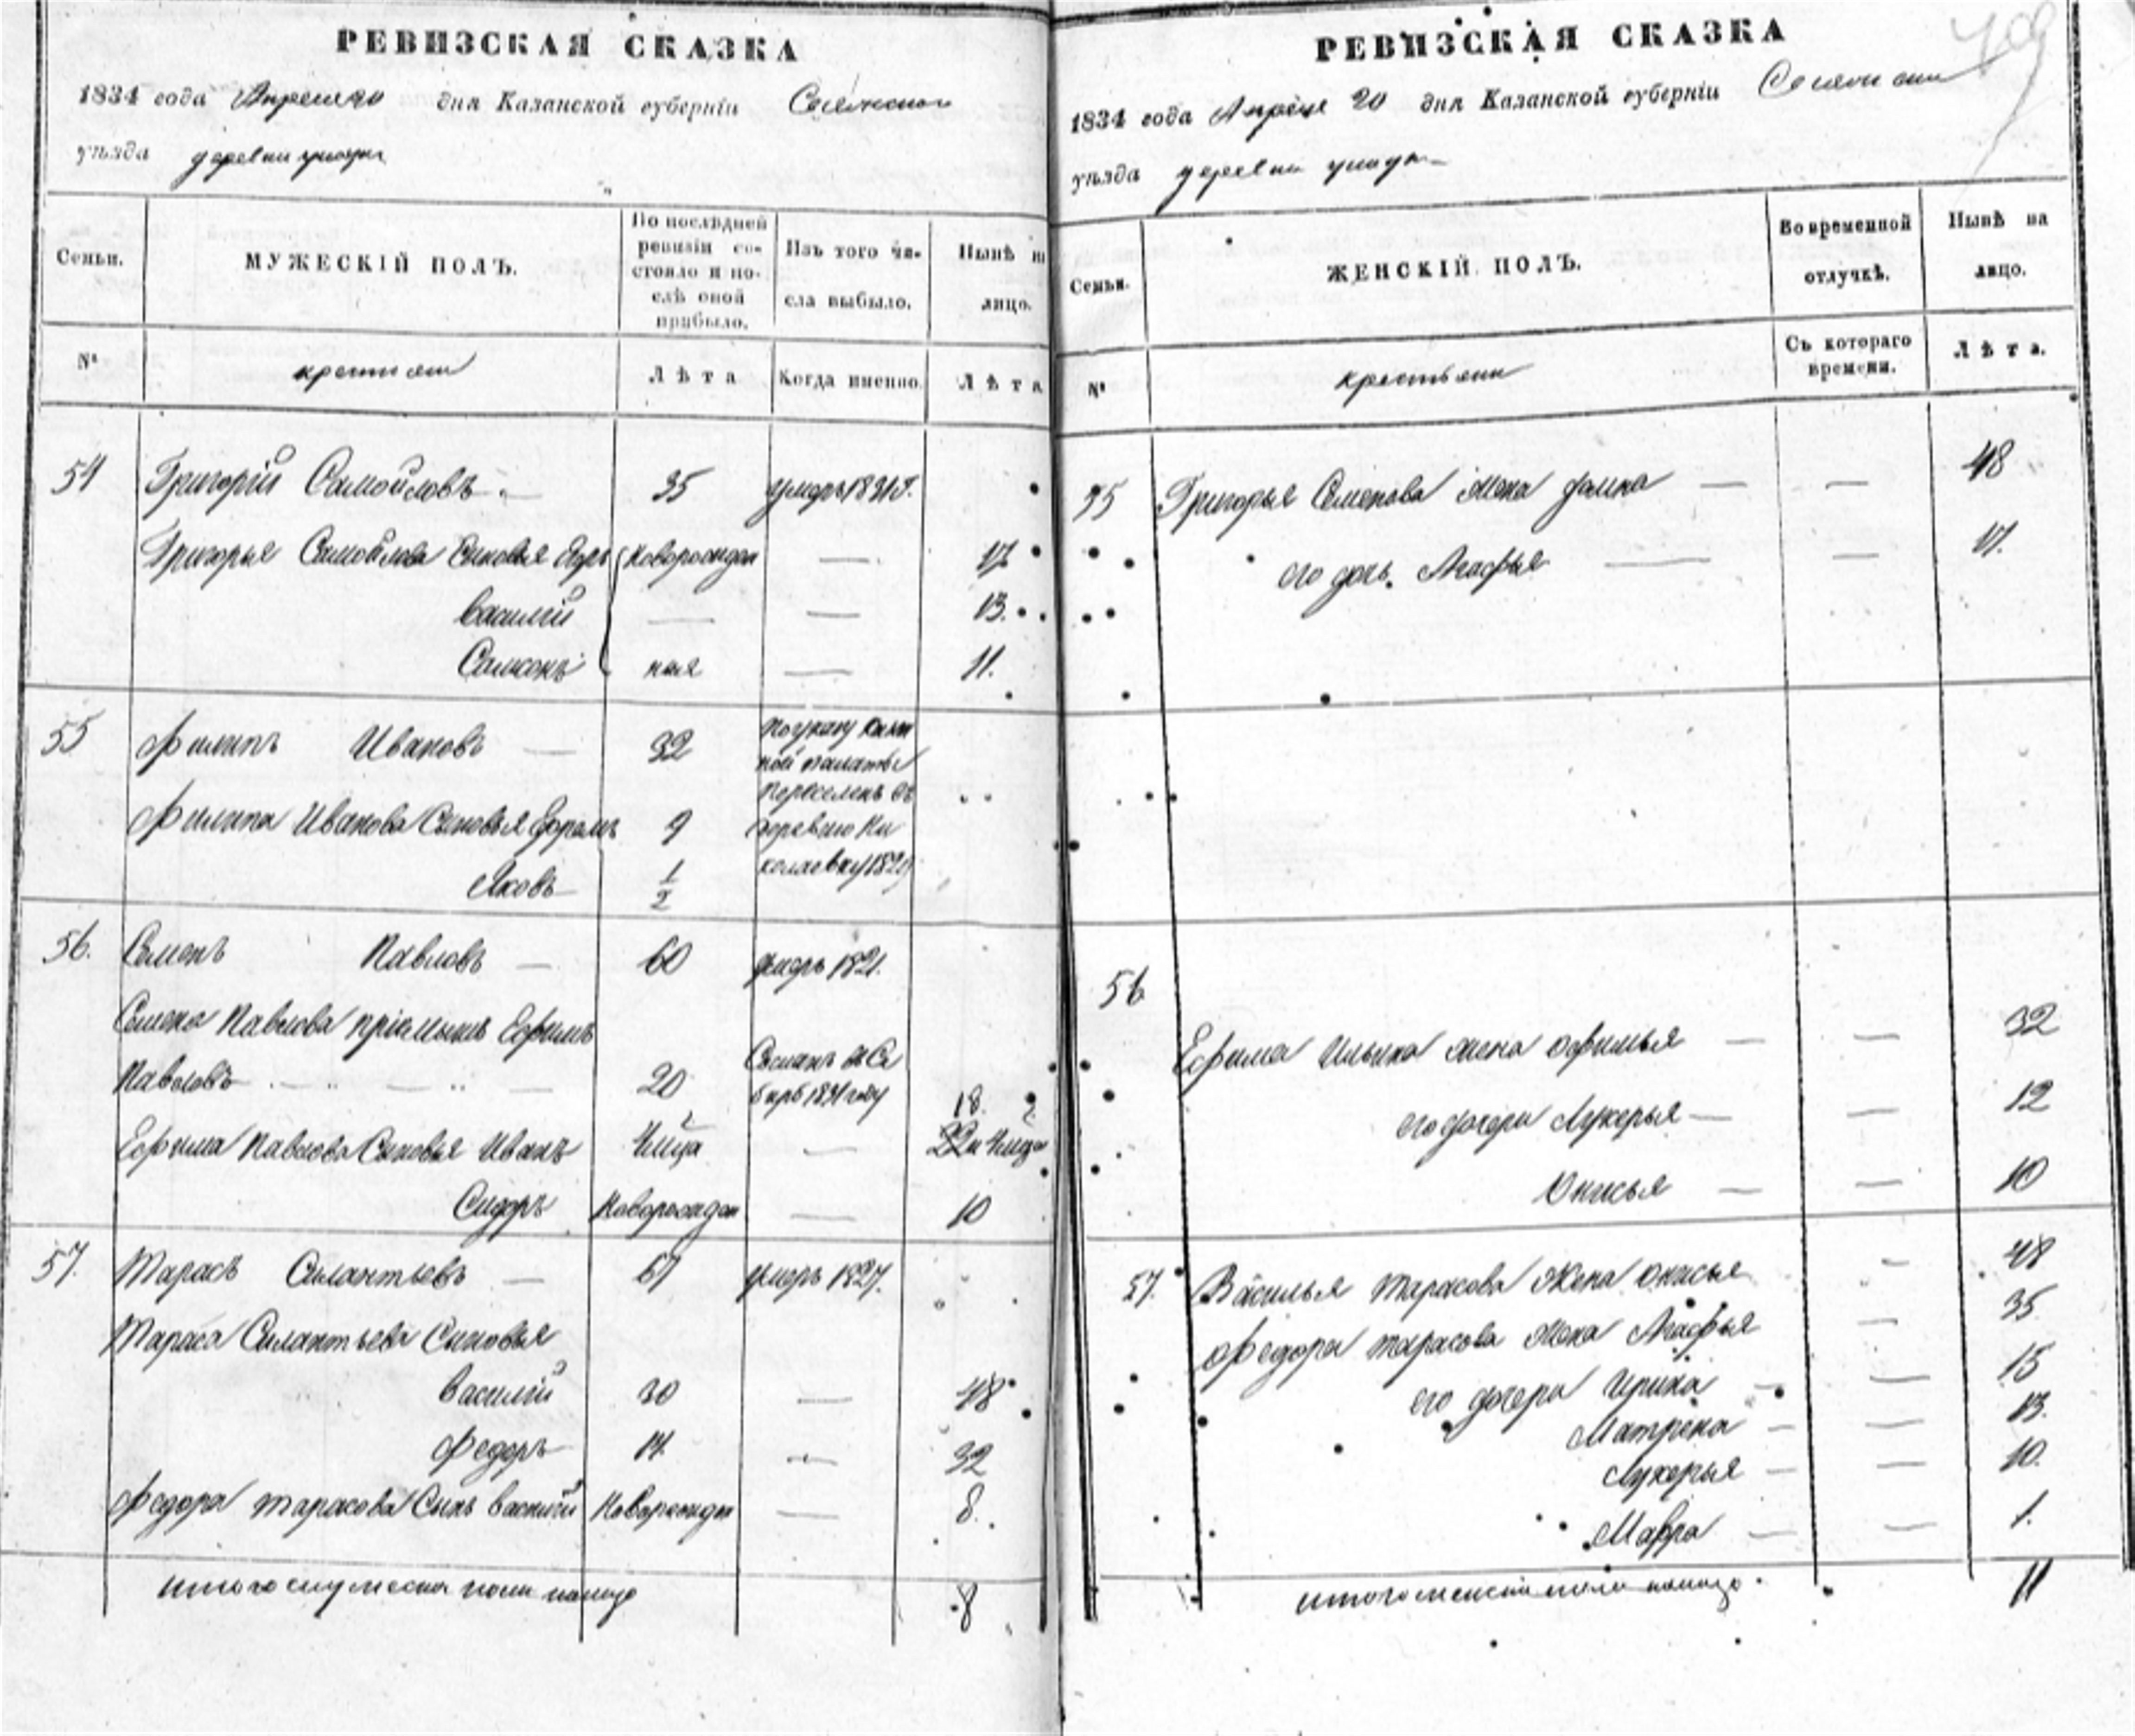 РЕВИЗСКАЯ СКАЗКА
1834 года Апреля 20 дня Казанской губерніи
уѣзда деревни
Семьи.
МУЖЕСКІЙ ПОЛЪ.
По послѣдней
ревизіи со-
стояло и по-
слѣ оной
прибыло.
Изъ того чи-
сла выбыло.
Нынѣ на
лицо.
№
крестьяни
Лѣта
Когда именно.
Лѣта
54 Григорій Самойловъ 35 умеръ 1831 г.
Григорья Самойлова Сыновья Егоръ новорожден 17
Василій 13.
Самсонъ ныя 11.
55 Филипъ Ивановъ 32
По указу Казен
ной палаты
Переселенъ въ
деревню Ни
колаевку
Филипа Иванова Сыновья Ефремъ 9
Яковъ 1/2
56. Семенъ Павловъ 60 умеръ 1821.
Семена Павлова пріемышъ Ефимъ
Павловъ 20 Сосланъ въ Си
бирь 1831 году
18.
Ефима Павлова Сыновья Иванъ
Сидоръ Новорожден 10
57. Тарасъ Силантьевъ 67 умеръ 1827.
Тараса Силантьева Сыновья
Василій 30 48
Федоръ 14 32
Федора Тарасова Сынъ Василій Новорожден 8.
итого мужеска пола налицо 8
РЕВИЗСКАЯ СКАЗКА
1834 года Апреля 20 дня Казанской губерніи
уѣзда деревни
Семьи.
ЖЕНСКІЙ ПОЛЪ.
Во временной
отлучкѣ.
Нынѣ на
лицо.
№
крестьяни
Съ котораго
времени.
Лѣта.
55 Григорья Семенова Жена 48
его дочь Агафья 17.
56
Ефима Ильина жена Офимья 32
его дочери Лукерья 12
Онисья 10
57. Василья Тарасова Жена Онисья 48
Федора Тарасова Жена Агафья 35
его дочери Ирина 15
Матрена 13.
Лукерья 10.
Мавра 1.
итого женска пола налицо 11